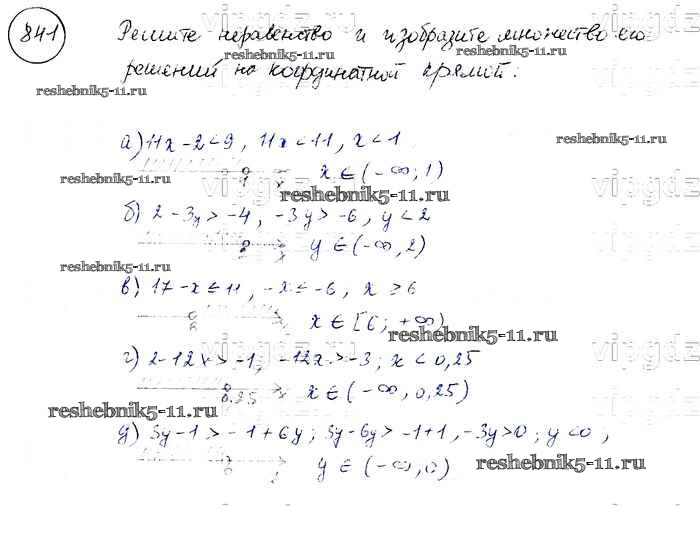 841 Решите неравенство и изобразите множество его
решений на координатной прямой:
reshebnik5-11.ru
reshebnik5-11.ru
а) 11x-2<9, 11x<11, x<1
reshebnik5-11.ru
1 x x∈(-∞; 1)
reshebnik5-11.ru
vipgdz
reshebnik5-11.ru
б) 2-3y>-4, -3y>-6, y<2
2 y∈(-∞, 2)
reshebnik5-11.ru
в) 17-x≤11, -x≤-6, x≥6
6 x∈[6; +∞)
reshebnik5-11.ru
reshebnik5-11.ru
г) 2-12x>-1; -12x>-3; x<0,25
vipgdz
0.25 x∈(-∞, 0,25)
reshebnik5-11.ru
д) 3y-1>-1+6y; 3y-6y>-1+1, -3y>0; y<0,
0 y∈(-∞, 0)
reshebnik5-11.ru
vipgdz